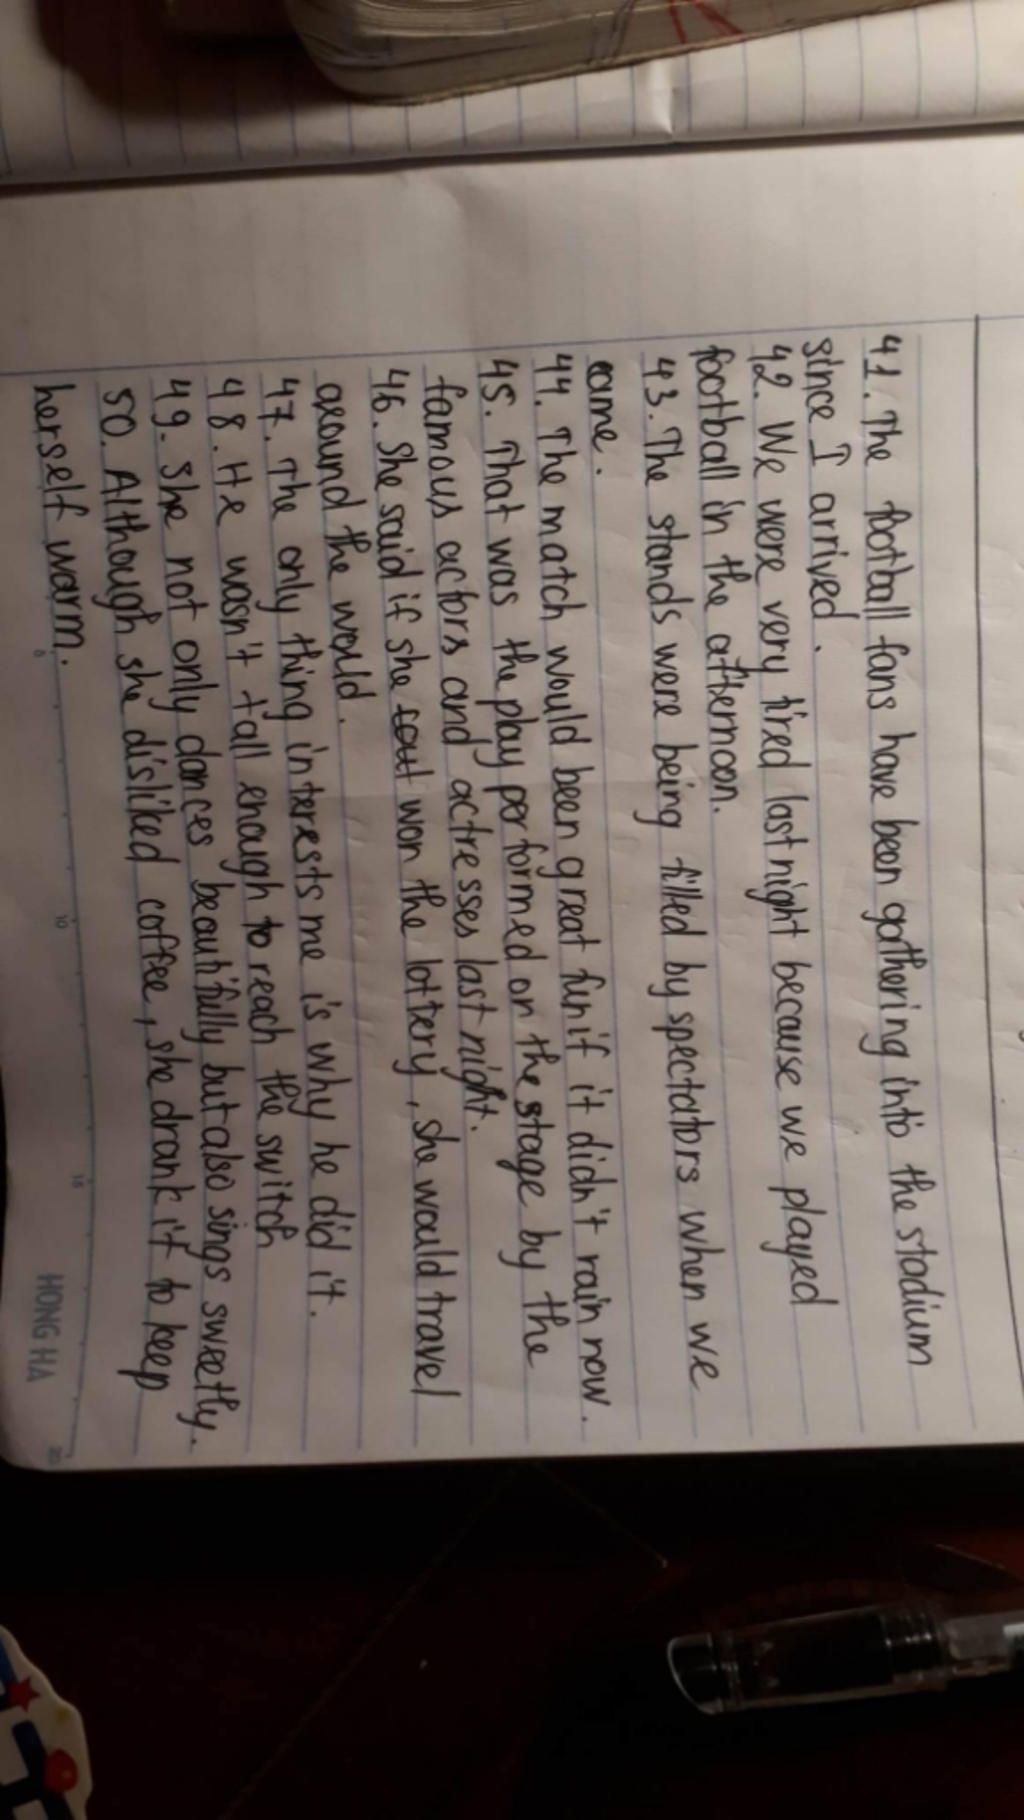 41. The football fans have been gathering into the stadium
since I arrived.
42. We were very tired last night because we played
football in the afternoon.
43. The stands were being filled by spectators when we
came.
44. The match would been great fun if it didn't rain now.
45. That was the play performed on the stage by the
famous actors and actresses last night.
46. She said if she won the lottery, she would travel
around the would.
47. The only thing interests me is why he did it.
48. He wasn't tall enough to reach the switch
49. She not only dances beautifully but also sings sweetly.
50. Although she disliked coffee, she drank it to keep
herself warm.
5 10 15 20
HONG HA